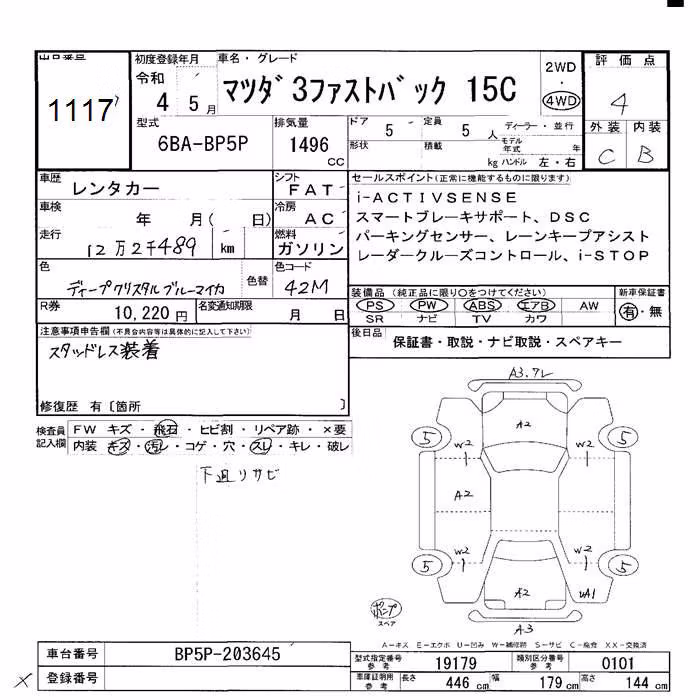 出品番号
1117
初度登録年月
令和
4 5月
車名・グレード
マツダ3ファストバック 15C
2WD
・
4WD
評価点
4
外装 内装
C B
型式
6BA-BP5P
排気量
1496
cc
ドア 5 定員 5 人
形状 積載 kg
ディーラー・並行
モデル年式 年
ハンドル 左・右
車歴 レンタカー
シフト FAT
車検 年 月( 日)
冷房 AC
走行 12万2千489 km
燃料 ガソリン
色 ディープクリスタルブルーマイカ
色替
色コード 42M
R券 10,220円
名変通知期限 月 日
セールスポイント(正常に機能するものに限ります)
i-ACTIVSENSE
スマートブレーキサポート、DSC
パーキングセンサー、レーンキープアシスト
レーダークルーズコントロール、i-STOP
装備品(純正品に限り○をつけてください)
PS PW ABS エアB AW
SR ナビ TV カワ
新車保証書
有・無
後日品
保証書・取説・ナビ取説・スペアキー
注意事項申告欄(不具合内容等は具体的に記入して下さい)
スタッドレス装着
修復歴 有〔箇所 〕
検査員記入欄
FW キズ・飛石・ヒビ割・リペア跡・×要
内装 キズ・汚レ・コゲ・穴・スレ・キレ・破レ
下廻リサビ
A3.ワレ
A2
5 W2 W2 5
A2
5 W2 W2 5
A2 UA1
A3
ポンプ
スペア
A-キズ E-エクボ U-凹み W-補修跡 S-サビ C-腐食 XX-交換済
車台番号 BP5P-203645
登録番号
×
型式指定番号 参考 19179
類別区分番号 参考 0101
車庫証明用 参考
長さ 446 cm 幅 179 cm 高さ 144 cm